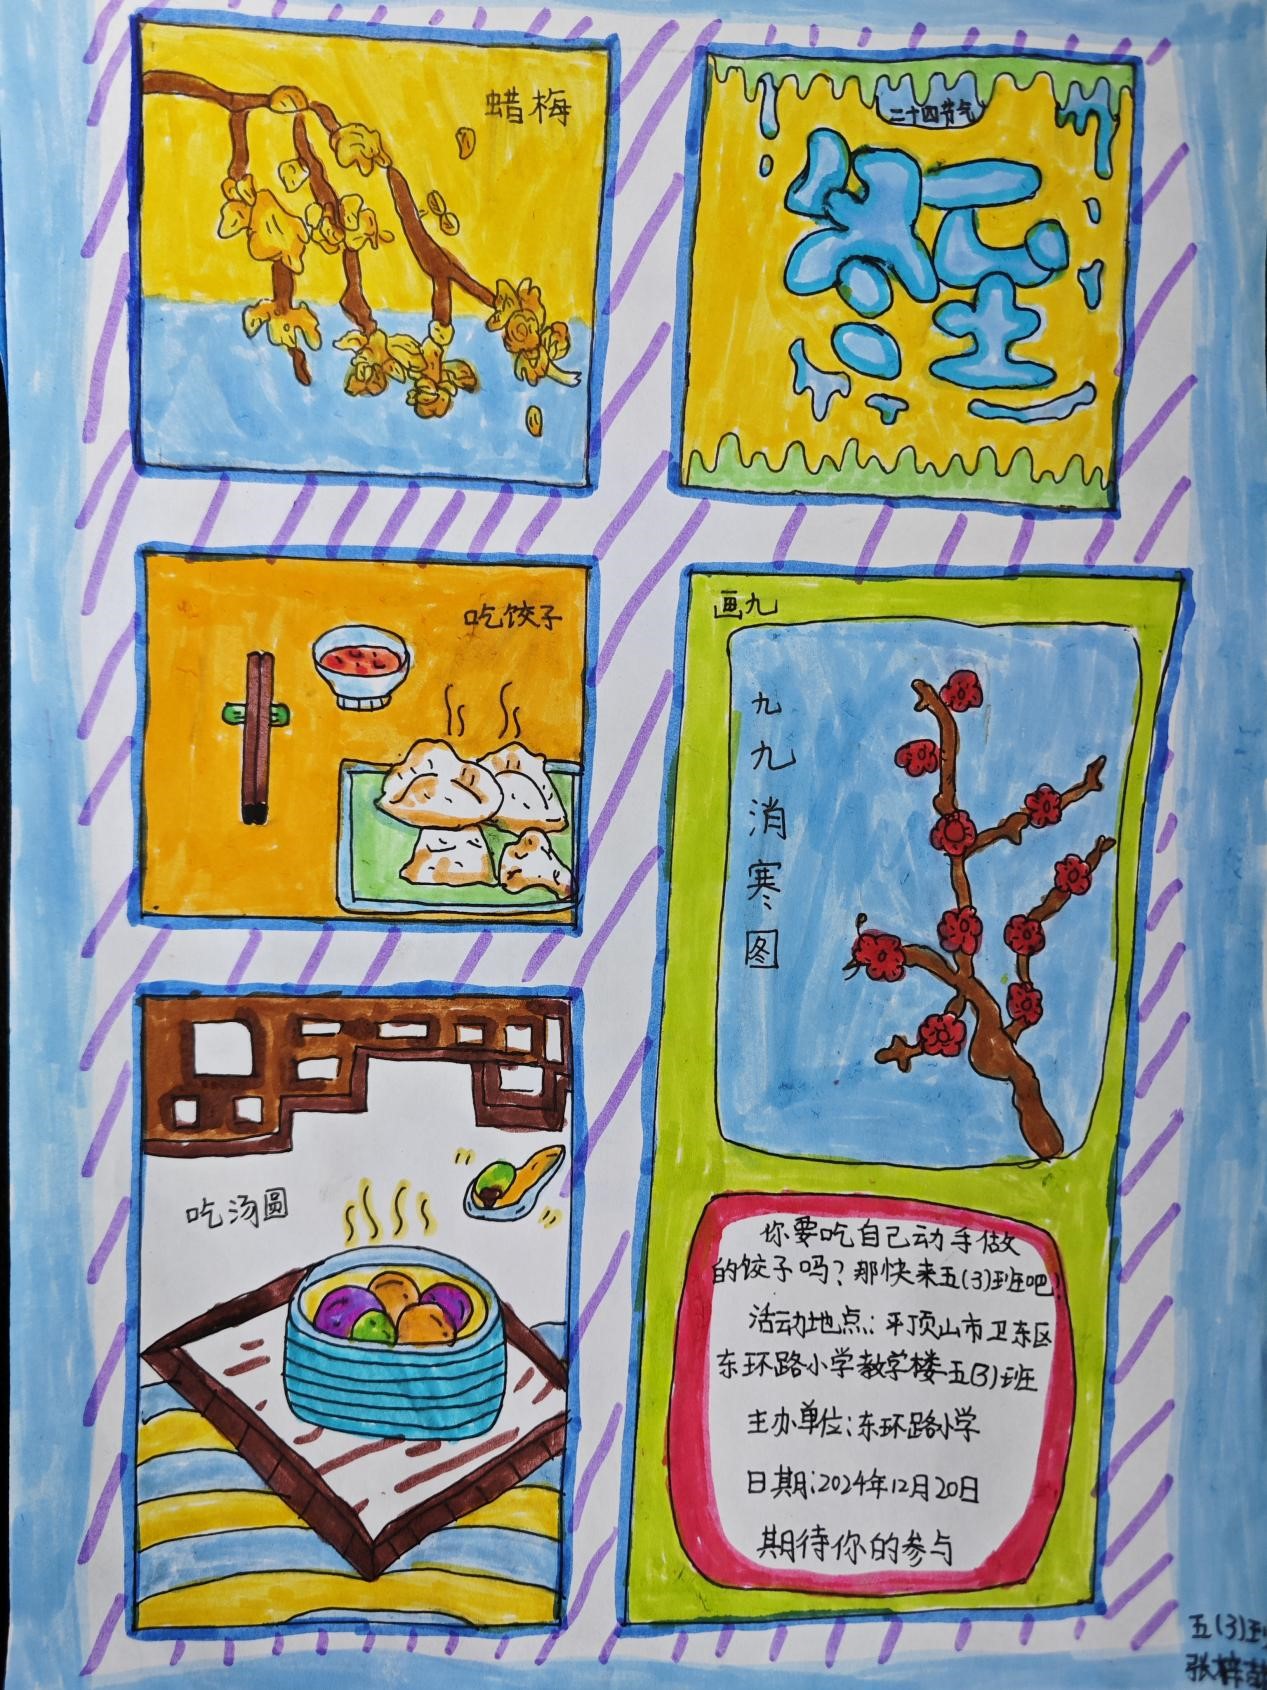 蜡梅
二十四节气
冬至
吃饺子
画九
九九消寒图
吃汤圆
你要吃自己动手做
的饺子吗？那快来五(3)班吧！
活动地点：平顶山市卫东区
东环路小学教学楼五(3)班
主办单位：东环路小学
日期：2024年12月20日
期待你的参与
五(3)班
张梓